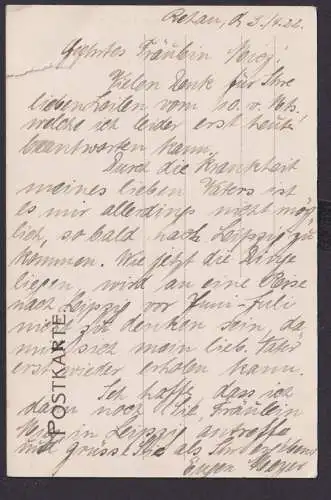 Rehau, d. 3./4.22.
Geehrtes Fräulein
Vielen Dank für Ihre
lieben Zeilen vom 10. v. Mts.
welche ich leider erst heute
beantworten kann.
Durch die Krankheit
meines lieben Vaters ist
es mir allerdings nicht mög
lich, so bald nach Leipzig zu
kommen. Wie jetzt die Dinge
liegen, wird an eine Reise
nach Leipzig vor Juni-Juli
nicht zu denken sein, da
muß sich mein lieb. Vater
erst wieder erholen kann.
Ich hoffe, dass ich
dann noch Sie, Fräulein
in Leipzig antreffe
und grüsse Sie als
Eugen Meyer
POSTKARTE.